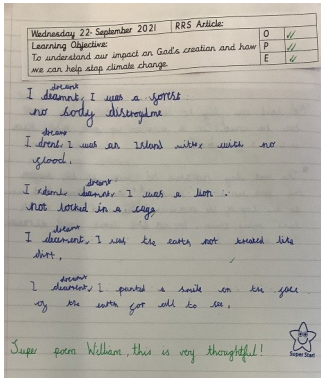 Wednesday 22nd September 2021 RRS Article:
Learning Objective:
To understand our impact on God's creation and how
we can help stop climate change.
O
P
E
dreamt
I deamnt, I was a forest
no body distroydme
dreamt
I dremt, I was an Island with no
flood.
dreamt
I was a lion
not locked in a cage
dreamt
I I was the earth not treated like
dirt.
dreamt
I I painted a smile on the face
of the earth for all to see.
Super Star!
Super poem William, this is very thoughtful!